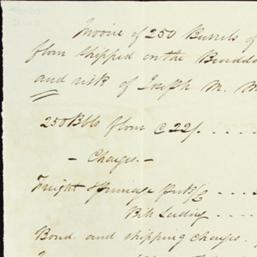 Invoice of 250 Barrels of
flour shipped on the
and risk of Joseph M. M
250 Bbls flour @ 22/. . . .
- Charges. -
Freight & primage . . . .
Bill Lading . . . .
Bond and shipping charges.